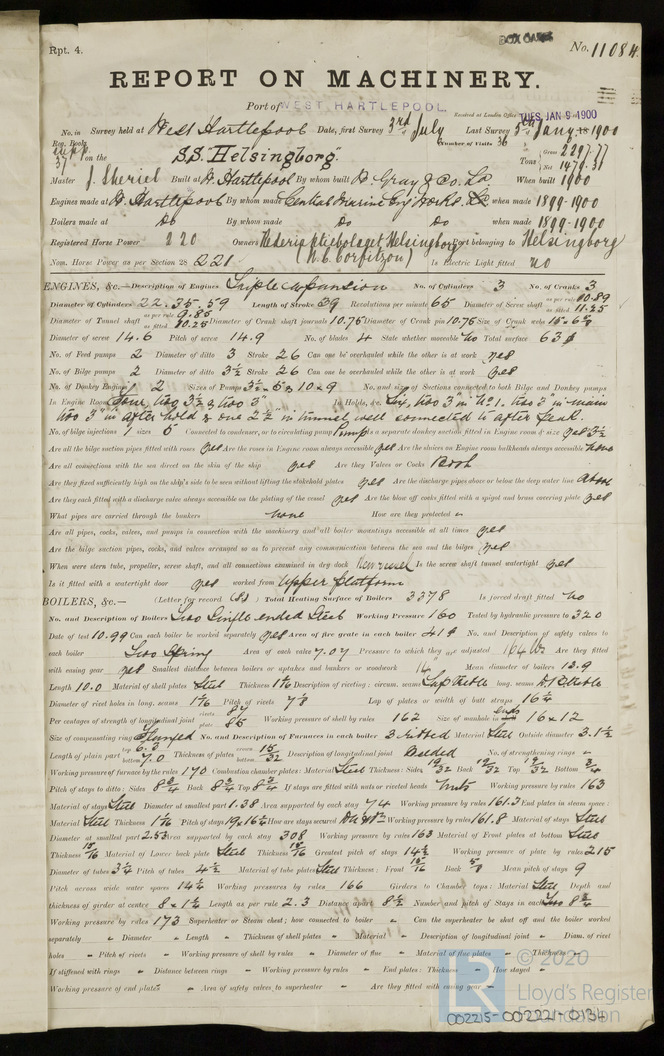 Rpt. 4.
BOX CASES
No. 11084.
REPORT ON MACHINERY.
Port of WEST HARTLEPOOL.
Received at London Office TUES. JAN 9 1900
No. in Survey held at West Hartlepool Date, first Survey 3rd July Last Survey 5th Jany. 1900
Reg. Book. Number of Visits 36
37 on the S.S. "Helsingborg". Tons { Gross 2297.77 Net 1479.31
Master J. Sheriel Built at W. Hartlepool By whom built W. Gray & Co. Ld. When built 1900
Engines made at W. Hartlepool By whom made Central Marine Eng Works. when made 1899-1900
Boilers made at Do By whom made Do Do when made 1899-1900
Registered Horse Power 220 Owners Helsingborg Port belonging to Helsingborg
Nom. Horse Power as per Section 28 221 (N.C. Corfitzon) Is Electric Light fitted no
ENGINES, &c.— Description of Engines Triple expansion No. of Cylinders 3 No. of Cranks 3
Diameter of Cylinders 22.35.59 Length of Stroke 39 Revolutions per minute 65 Diameter of Screw shaft as per rule 10.89 as fitted 11.25
Diameter of Tunnel shaft as per rule 9.85 as fitted 10.25 Diameter of Crank shaft journals 10.75 Diameter of Crank pin 10.75 Size of Crank webs
Diameter of screw 14.6 Pitch of screw 14.9 No. of blades 4 State whether moveable No Total surface 63
No. of Feed pumps 2 Diameter of ditto 3 Stroke 26 Can one be overhauled while the other is at work yes
No. of Bilge pumps 2 Diameter of ditto 3½ Stroke 26 Can one be overhauled while the other is at work yes
No. of Donkey Engines 2 Sizes of Pumps No. and size of Suctions connected to both Bilge and Donkey pumps
In Engine Room Four, two 3½ & two 3" In Holds, &c. Six, two 3" in No 1. two 3" in main
two 3" in after hold & one 2½" in tunnel well connected to after peak.
No. of bilge injections 1 sizes 5 Connected to condenser, or to circulating pump Pump Is a separate donkey suction fitted in Engine room & size yes 3½
Are all the bilge suction pipes fitted with roses yes Are the roses in Engine room always accessible yes Are the sluices on Engine room bulkheads always accessible none
Are all connections with the sea direct on the skin of the ship yes Are they Valves or Cocks Both
Are they fixed sufficiently high on the ship's side to be seen without lifting the stokehold plates yes Are the discharge pipes above or below the deep water line above
Are they each fitted with a discharge valve always accessible on the plating of the vessel yes Are the blow off cocks fitted with a spigot and brass covering plate yes
What pipes are carried through the bunkers none How are they protected -
Are all pipes, cocks, valves, and pumps in connection with the machinery and all boiler mountings accessible at all times yes
Are the bilge suction pipes, cocks, and valves arranged so as to prevent any communication between the sea and the bilges yes
When were stern tube, propeller, screw shaft, and all connections examined in dry dock New vessel Is the screw shaft tunnel watertight yes
Is it fitted with a watertight door yes worked from Upper platform
BOILERS, &c.— (Letter for record ) Total Heating Surface of Boilers 3378 Is forced draft fitted No
No. and Description of Boilers Two Single ended Steel Working Pressure 160 Tested by hydraulic pressure to 320
Date of test 10.99 Can each boiler be worked separately yes Area of fire grate in each boiler 41 No. and Description of safety valves to
each boiler Two Spring Area of each valve 7.07 Pressure to which they are adjusted 164 lbs Are they fitted
with easing gear yes Smallest distance between boilers or uptakes and bunkers or woodwork 14 Mean diameter of boilers 13.9
Length 10.0 Material of shell plates Steel Thickness 1 1/16 Description of riveting: circum. seams Lap treble long. seams
Diameter of rivet holes in long. seams 1 1/16 Pitch of rivets 7⅞ Lap of plates or width of butt straps 16¼
Per centages of strength of longitudinal joint rivets 87 plate 85 Working pressure of shell by rules 162 Size of manhole in ends 16 x 12
Size of compensating ring Flanged No. and Description of Furnaces in each boiler 3 ribbed Material Steel Outside diameter 3.1½
Length of plain part top 6.3 bottom 7.0 Thickness of plates crown bottom 15/32 Description of longitudinal joint Welded No. of strengthening rings -
Working pressure of furnace by the rules 170 Combustion chamber plates: Material Steel Thickness: Sides 19/32 Back 19/32 Top 19/32 Bottom ¾
Pitch of stays to ditto: Sides 8¾ Back 8¾ Top 8¾ If stays are fitted with nuts or riveted heads Nuts Working pressure by rules 163
Material of stays Steel Diameter at smallest part 1.38 Area supported by each stay 74 Working pressure by rules 161.3 End plates in steam space:
Material Steel Thickness 1 1/16 Pitch of stays How are stays secured Working pressure by rules 161.8 Material of stays Steel
Diameter at smallest part 2.53 Area supported by each stay 308 Working pressure by rules 163 Material of Front plates at bottom Steel
Thickness 15/16 Material of Lower back plate Steel Thickness 15/16 Greatest pitch of stays 14½ Working pressure of plate by rules 215
Diameter of tubes 3¼ Pitch of tubes 4½ Material of tube plates Steel Thickness: Front 15/16 Back Mean pitch of stays 9
Pitch across wide water spaces 14¼ Working pressures by rules 166 Girders to Chamber tops: Material Steel Depth and
thickness of girder at centre 8 x 1½ Length as per rule 2.3 Distance apart 8½ Number and pitch of Stays in each Two 8¾
Working pressure by rules 173 Superheater or Steam chest; how connected to boiler - Can the superheater be shut off and the boiler worked
separately - Diameter - Length - Thickness of shell plates - Material - Description of longitudinal joint - Diam. of rivet
holes - Pitch of rivets - Working pressure of shell by rules - Diameter of flue - Material of flue plates - Thickness -
If stiffened with rings - Distance between rings - Working pressure by rules - End plates: Thickness - How stayed -
Working pressure of end plates - Area of safety valves to superheater - Are they fitted with easing gear -
LR © 2020
Lloyd's Register
Foundation
002215-002221-0134